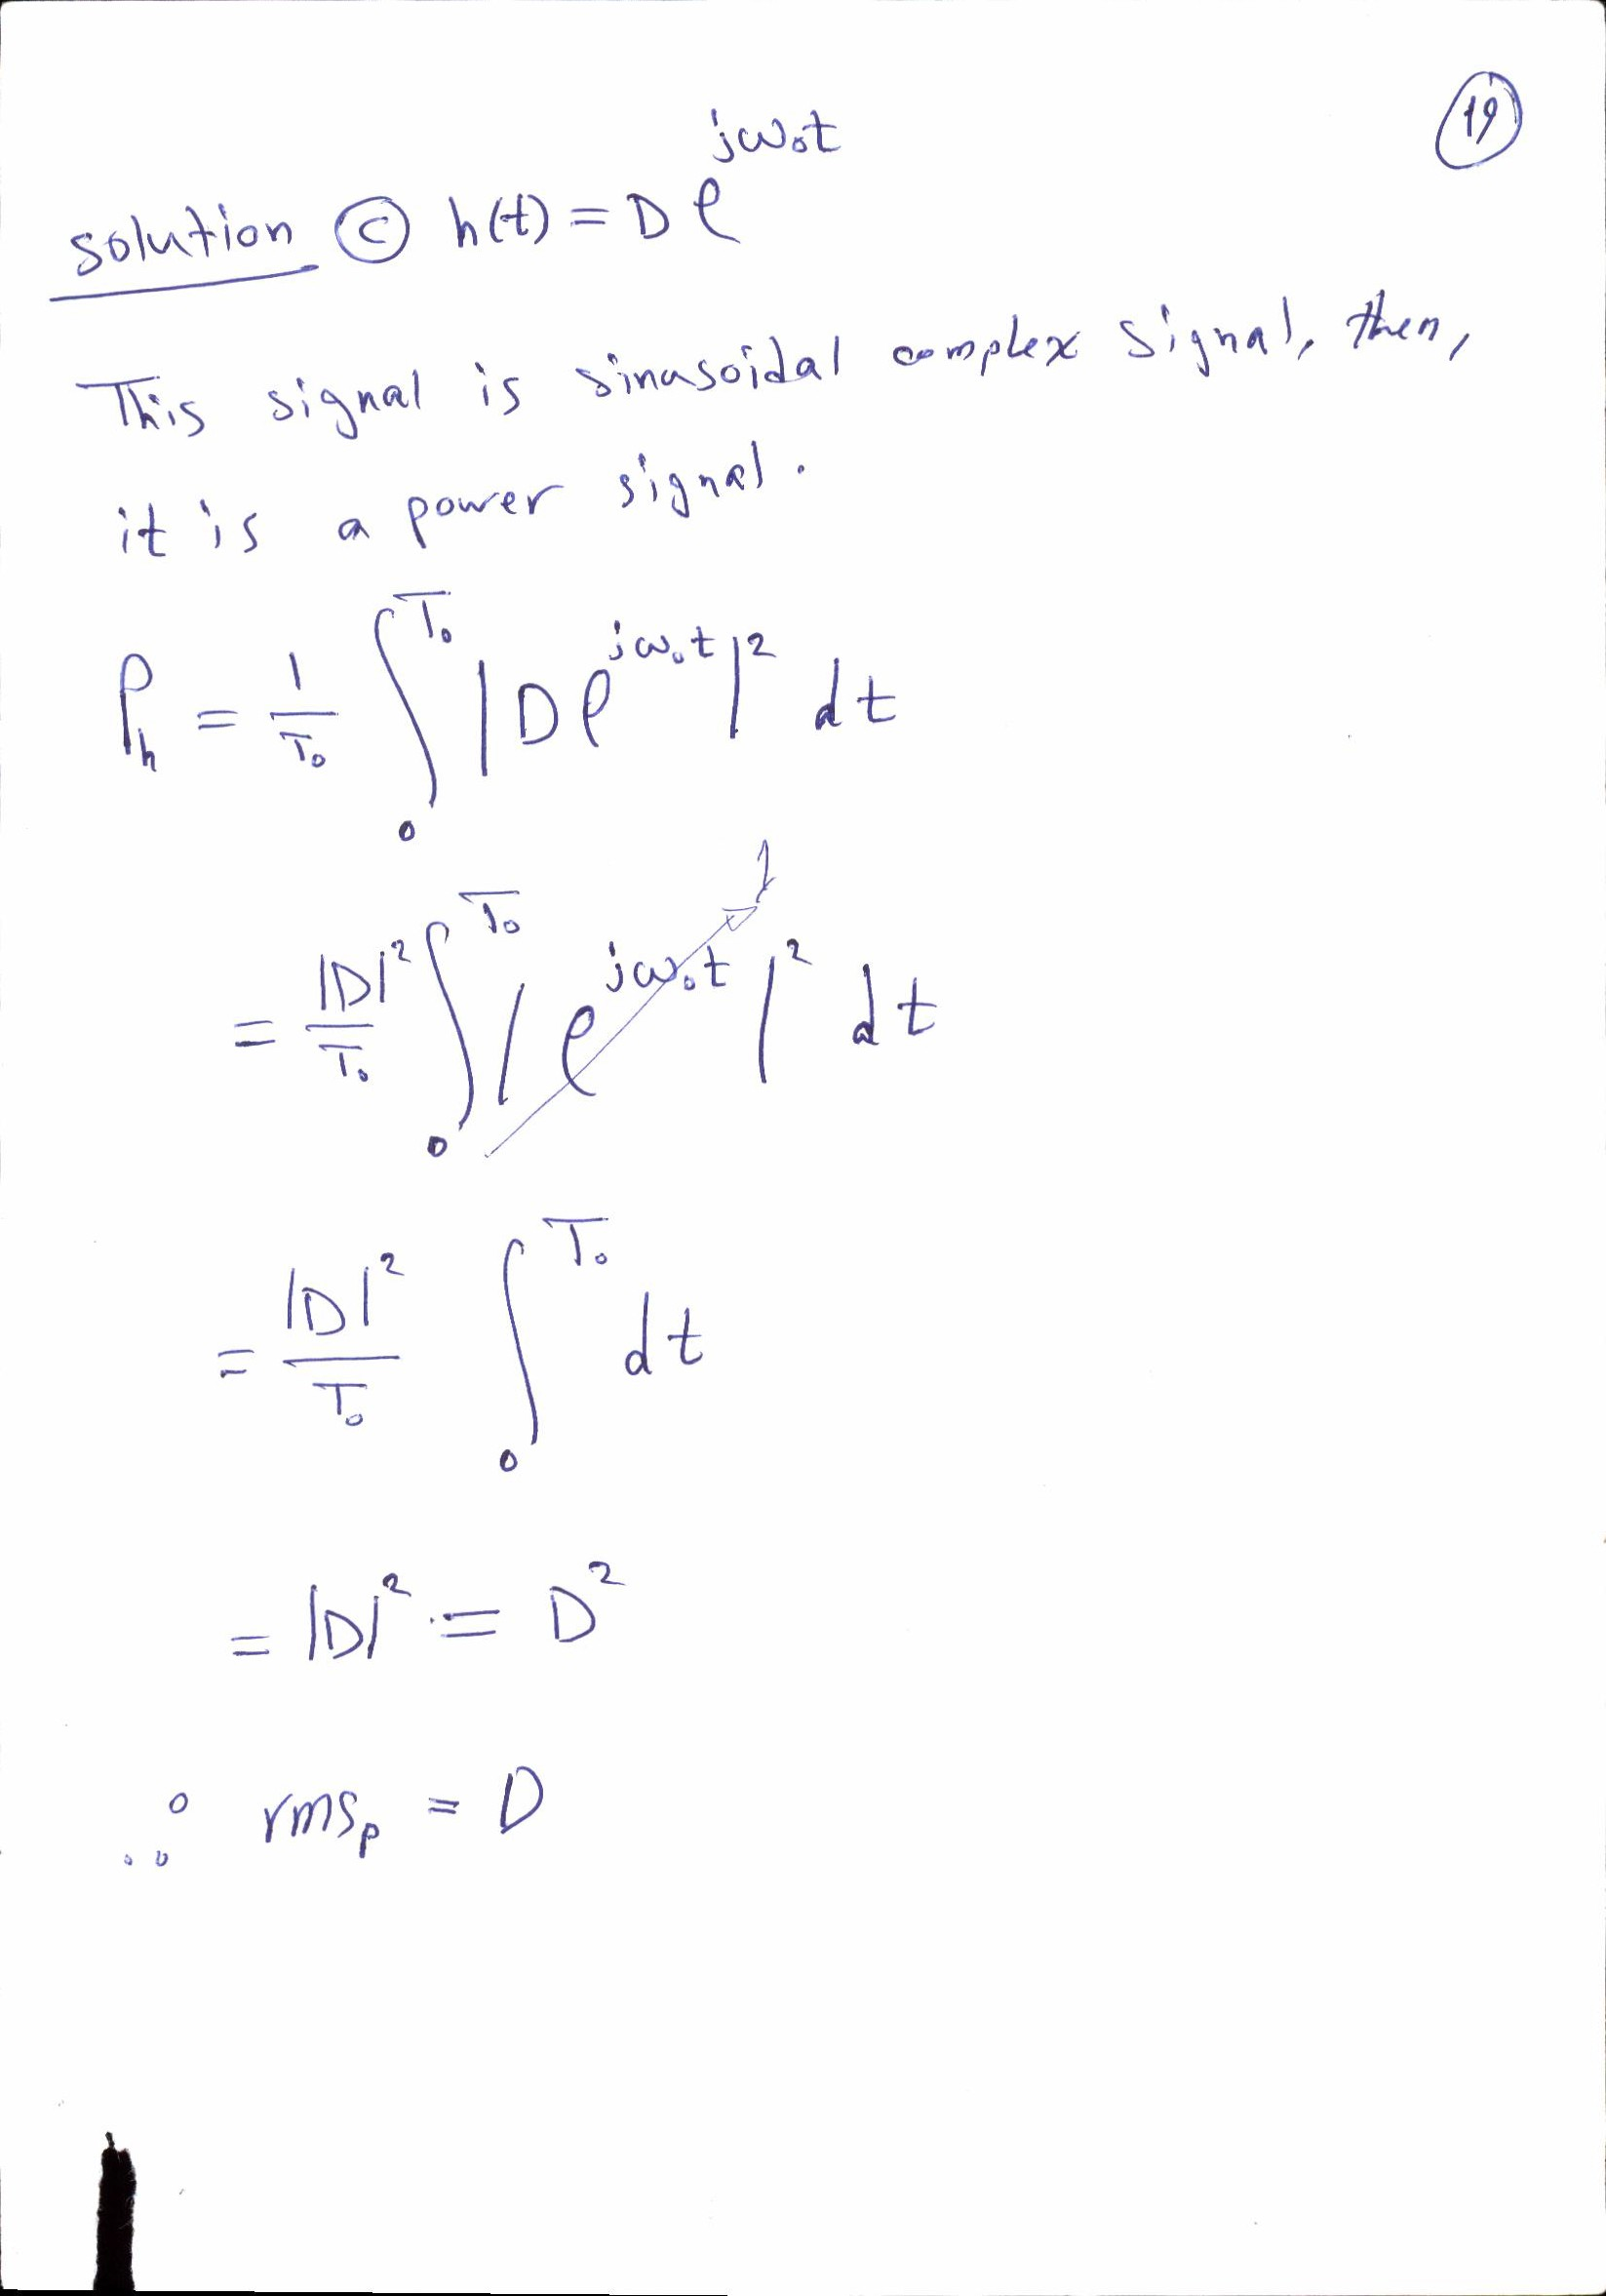 19
solution ⓒ h(t) = D e^{jω₀t}
This signal is sinusoidal complex signal, then,
it is a power signal.
P_h = 1/T₀ ∫₀^{T₀} |D e^{jω₀t}|² dt
= |D|²/T₀ ∫₀^{T₀} |e^{jω₀t}|² dt 1
= |D|²/T₀ ∫₀^{T₀} dt
= |D|² = D²
∴ rms_p = D